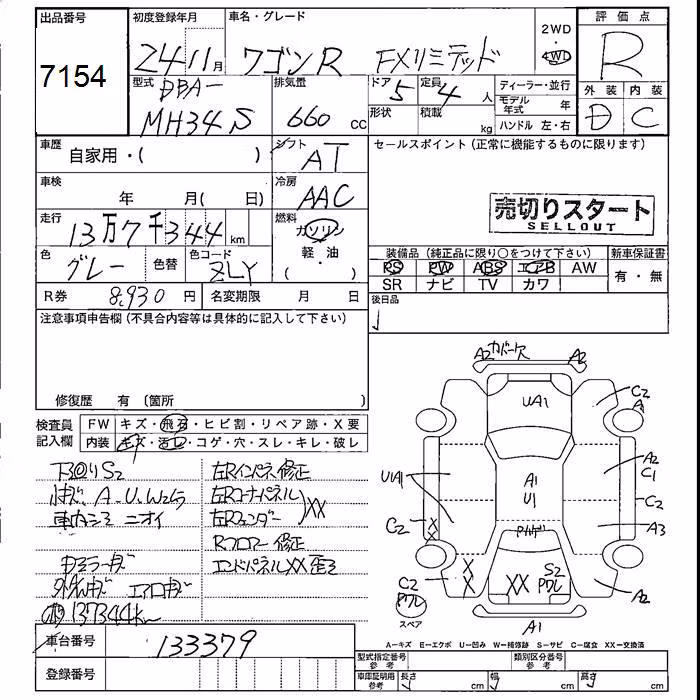 出品番号
7154
初度登録年月
24 11月
車名・グレード
ワゴンR FXリミテッド
2WD
4WD
評価点
R
外装 内装
D C
型式
DBA-
MH34S
排気量
660 cc
ドア 5
定員 4 人
形状
積載 kg
ディーラー・並行
モデル年式 年
ハンドル 左・右
車歴
自家用・( )
シフト
AT
セールスポイント(正常に機能するものに限ります)
売切りスタート
SELLOUT
車検
年 月( 日)
冷房
AAC
走行
13万7千344 km
燃料
ガソリン
軽・油
( ・ )
色
グレー
色替
色コード
ZLY
装備品(純正品に限り○をつけて下さい)
PS PW ABS エアB AW
SR ナビ TV カワ
新車保証書
有・無
R券 8,930 円
名変期限 月 日
後日品
注意事項申告欄(不具合内容等は具体的に記入して下さい)
修復歴 有(箇所 )
検査員
記入欄
FW キズ・飛石・ヒビ割・リペア跡・X要
内装 キズ・汚レ・コゲ・穴・スレ・キレ・破レ
下回りS2
小キズ A.U.Wムラ
車内シミ ニオイ
ミラーキズ
エアロキズ
137344km
左Rインパネ修正
左Rコーナパネル
左Rフェンダー
XX
Rフロアー修正
エンドパネルXX歪ミ
A2 カバー欠 A2
UA1
C2
A
U1A1
A1
U1
A2
C1
C2
C2
X
X
A3
X
X
XX
S2
A2
C2
スペア
A1
A=キズ E=エクボ U=凹み W=補修跡 S=サビ C=腐食 XX=交換済
車台番号
133379
登録番号
型式指定番号
参考
類別区分番号
参考
車庫証明用
参考
長さ cm
幅 cm
高さ cm